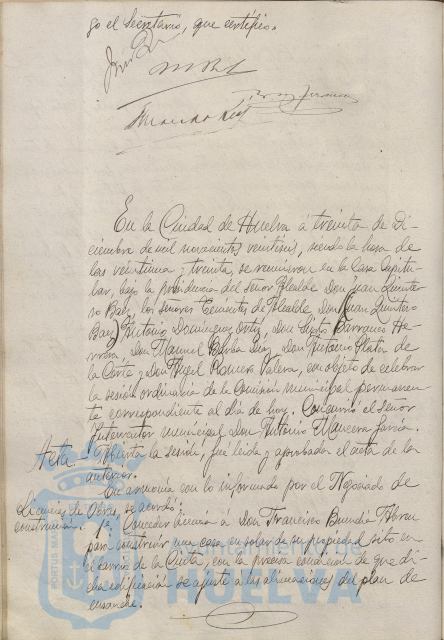 go el Secretario, que certifico.
En la Ciudad de Huelva á treinta de Di-
ciembre de mil novecientos veintiseis, siendo la hora de
las veintiuna y treinta, se reunieron en la Casa Capitu-
lar, bajo la presidencia del señor Alcalde Don Juan Quinte-
ro Baez, los señores Tenientes de Alcalde Don (Juan Quintero
Baez) Antonio Dominguez Ortiz, Don Justo Barranco He-
rrera, Don Manuel Barba Diaz, Don Antonio de
la Corte y Don Angel Romero Valera, en objeto de celebrar
la sesión ordinaria de la Comisión municipal permanen-
te correspondiente al dia de hoy. Concurrió el señor
Interventor municipal Don Antonio García.
Acta. Abierta la sesión, fue leida y aprobada el acta de la
anterior.
En armonía con lo informado por el Negociado de
Licencias de Obras, se acordó:
construcción. 1º Conceder licencia á Don Francisco Abreu
para construir una casa en solar de su propiedad sito en
el barrio de la con la precisa condición de que di-
cha edificación se ajuste a las alineaciones del plan de
ensanche.
Ayuntamiento de
HUELVA
PORTUS MA